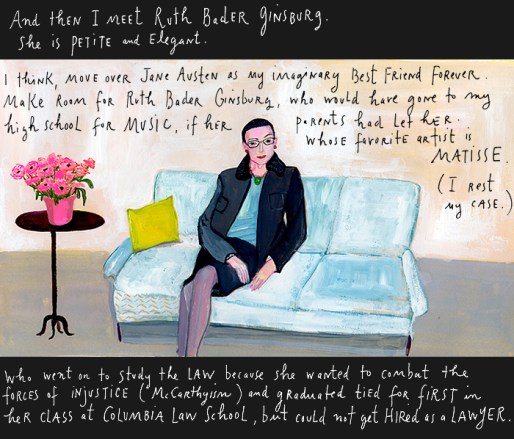 And then I meet Ruth Bader Ginsburg.
She is petite and elegant.
I think, move over Jane Austen as my imaginary Best Friend Forever.
Make room for Ruth Bader Ginsburg, who would have gone to my
high school for MUSIC, if her parents had let her.
whose favorite artist is
MATISSE.
(I rest
my case.)
who went on to study the LAW because she wanted to combat the
forces of INJUSTICE (McCarthyism) and graduated tied for first in
her class at Columbia Law School, but could not get Hired as a LAWYER.